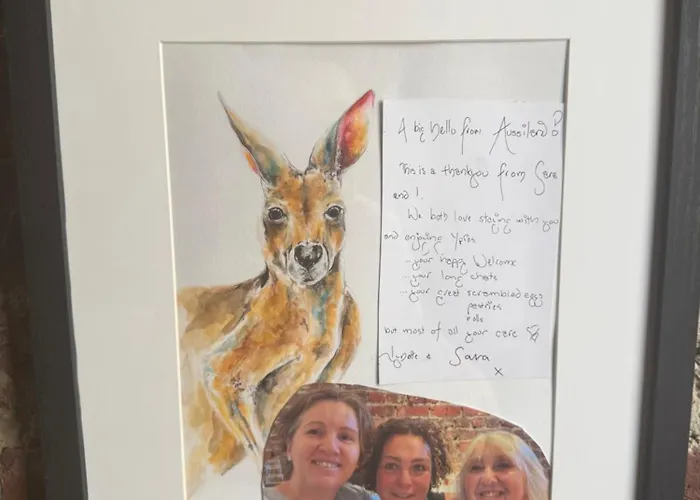 A big hello from Aussieland
This is a thankyou from Sara
and I.
We both love staying with you
and enjoying Ypres
- your happy Welcome
- your long chats
- your great scrambled eggs
pastries
rolls
but most of all your care
& Sara
x